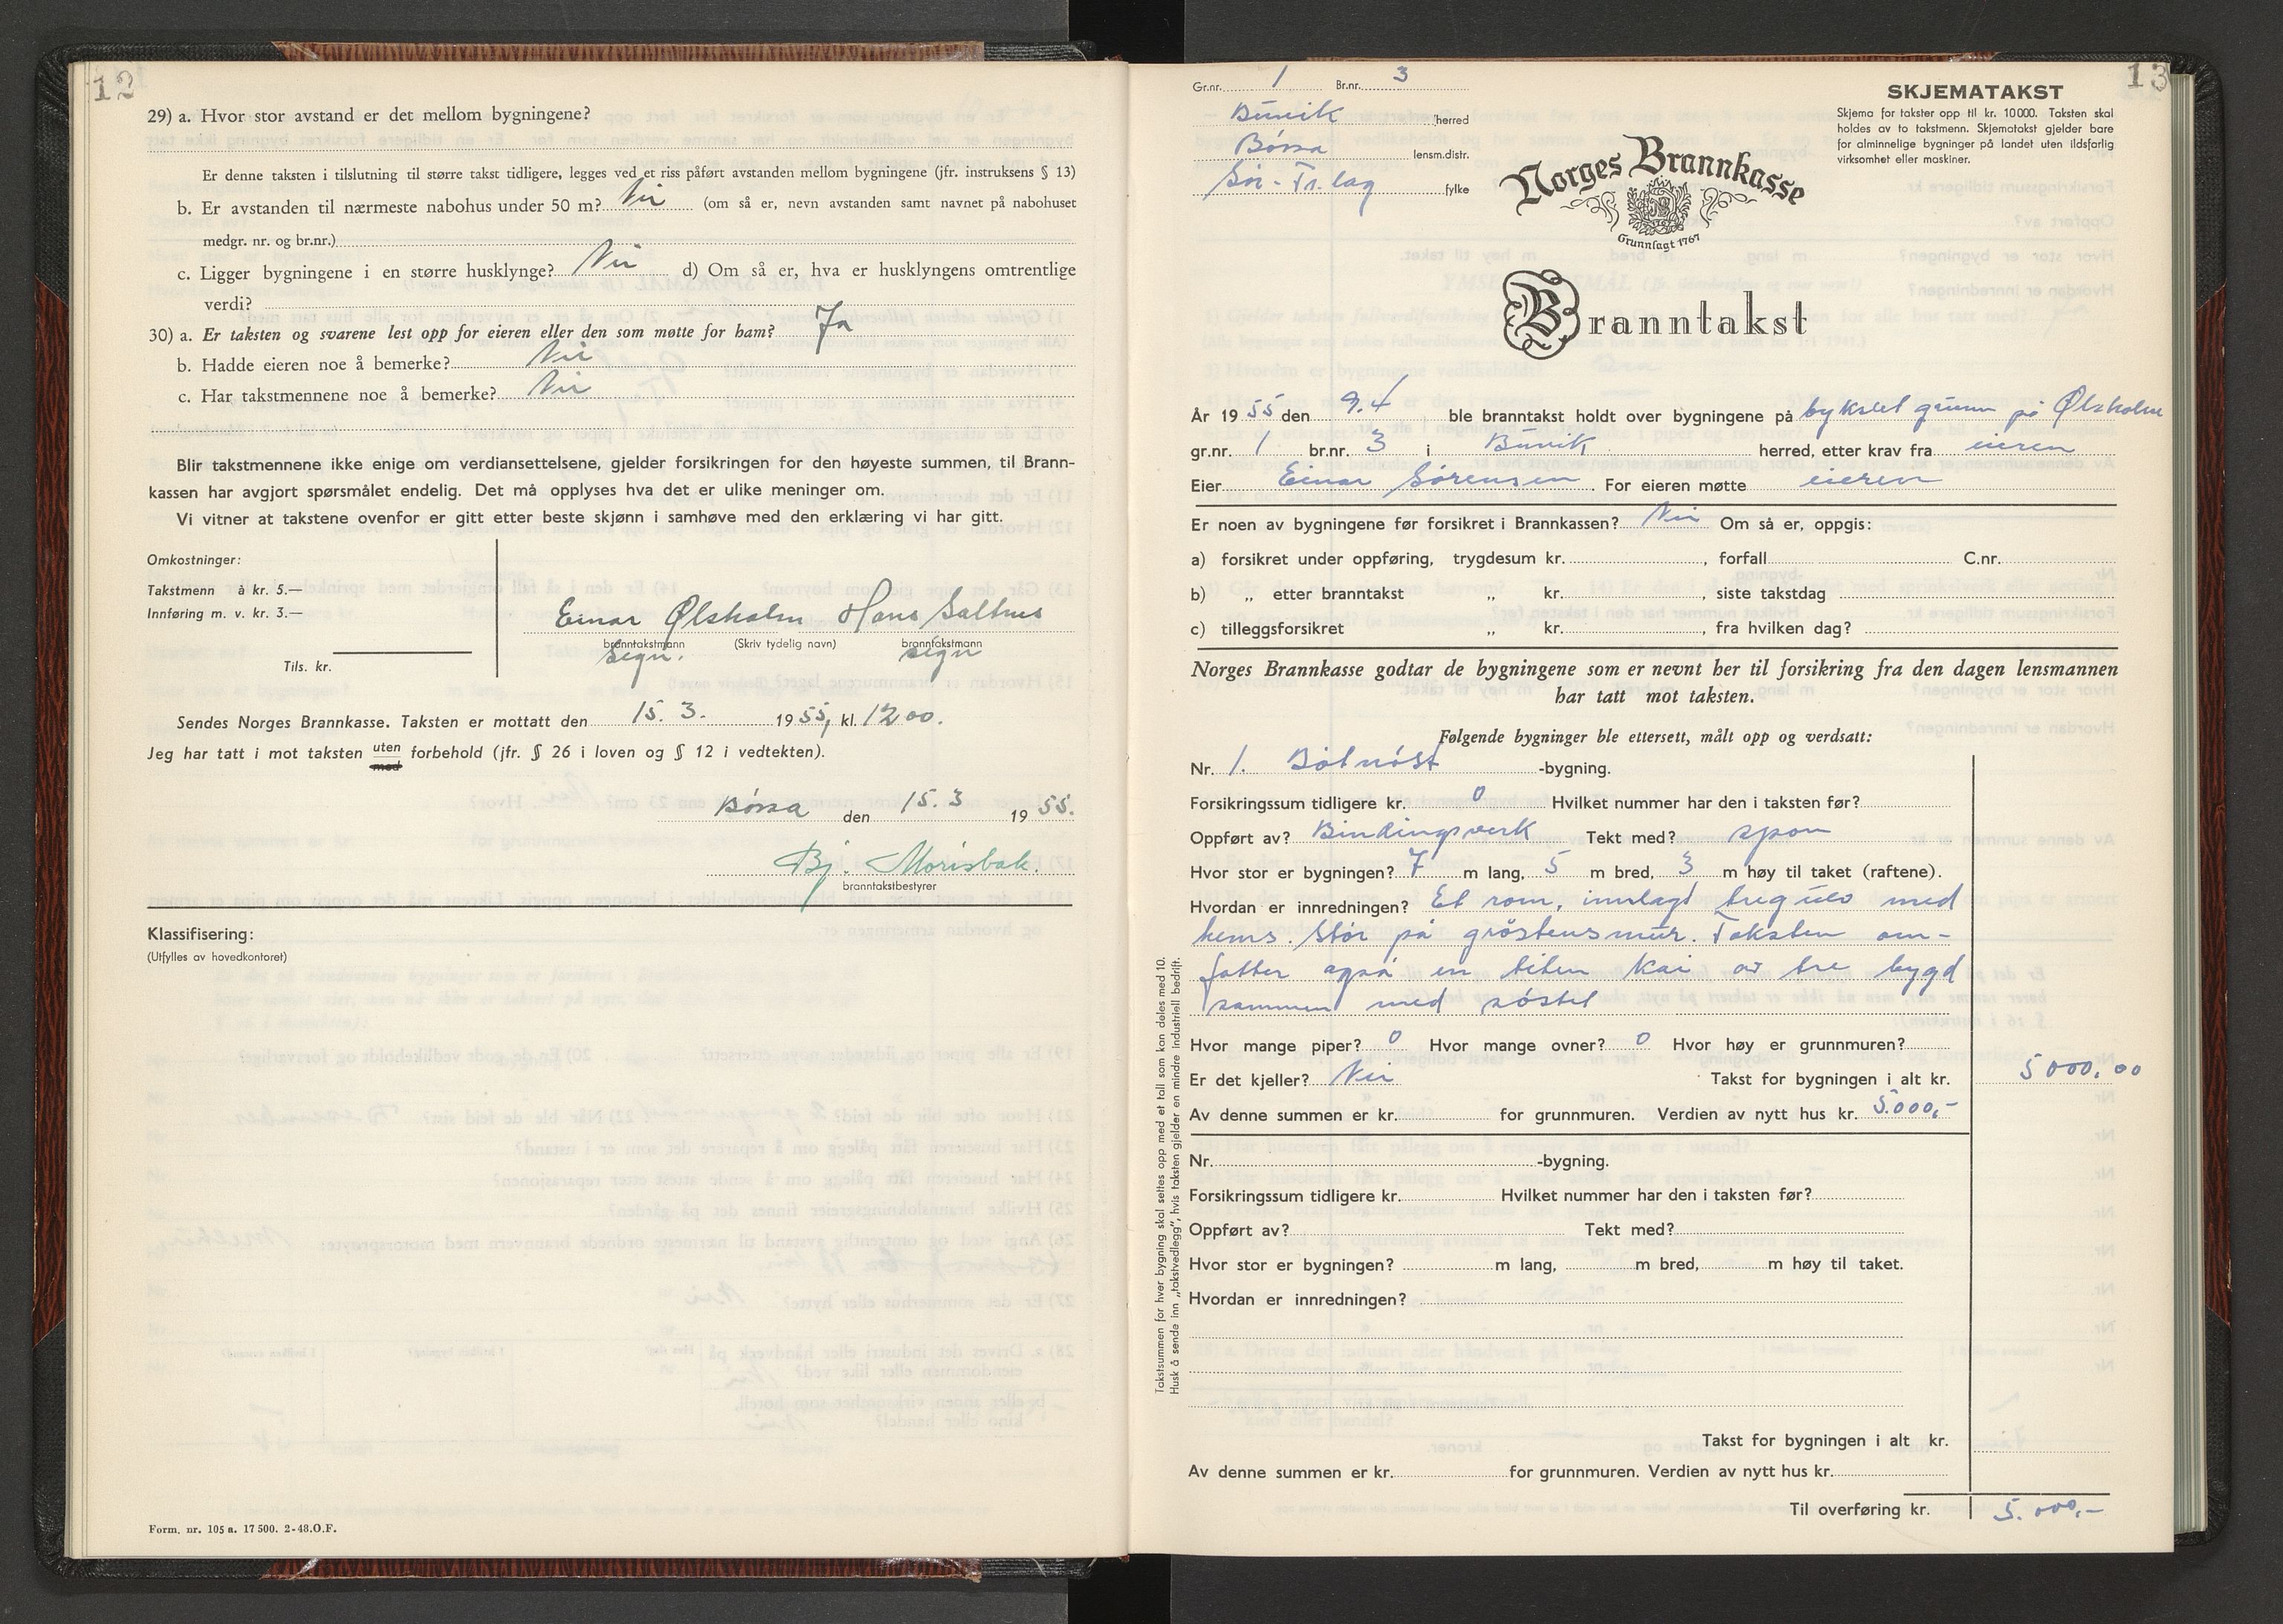 12
29) a. Hvor stor avstand er det mellom bygningene?
Er denne taksten i tilslutning til større takst tidligere, legges ved et riss påført avstanden mellom bygningene (jfr. instruksens § 13)
b. Er avstanden til nærmeste nabohus under 50 m? Nei (om så er, nevn avstanden samt navnet på nabohuset
medgr. nr. og br.nr.)
c. Ligger bygningene i en større husklynge? Nei d) Om så er, hva er husklyngens omtrentlige
verdi?
30) a. Er taksten og svarene lest opp for eieren eller den som møtte for ham? Ja
b. Hadde eieren noe å bemerke? Nei
c. Har takstmennene noe å bemerke? Nei
Blir takstmennene ikke enige om verdiansettelsene, gjelder forsikringen for den høyeste summen, til Brann-
kassen har avgjort spørsmålet endelig. Det må opplyses hva det er ulike meninger om.
Vi vitner at takstene ovenfor er gitt etter beste skjønn i samhøve med den erklæring vi har gitt.
Omkostninger:
Takstmenn å kr. 5.—
Innføring m. v. kr. 3.—
Tils. kr.
Einar Ølsholm Hans Saltnes
branntakstmann (Skriv tydelig navn) branntakstmann
segn. segn
Sendes Norges Brannkasse. Taksten er mottatt den 15. 3. 1955, kl. 1200.
Jeg har tatt i mot taksten uten forbehold (jfr. § 26 i loven og § 12 i vedtekten).
med
Børsa den 15. 3 1955.
Bj. Morisbak.
branntakstbestyrer
Klassifisering:
(Utfylles av hovedkontoret)
Form. nr. 105 a. 17 500. 2-48.O.F.
13
Gr.nr. 1 Br.nr. 3
Buvik herred
Børsa lensm.distr.
Sør-Tr.lag fylke
SKJEMATAKST
Skjema for takster opp til kr. 10 000. Taksten skal
holdes av to takstmenn. Skjematakst gjelder bare
for alminnelige bygninger på landet uten ildsfarlig
virksomhet eller maskiner.
Norges Brannkasse
Grunnlagt 1767
Branntakst
År 1955 den 9.4 ble branntakst holdt over bygningene på bykslet grunn på Ølsholm
gr.nr. 1 br.nr. 3 i Buvik herred, etter krav fra eieren
Eier Einar Sørensen. For eieren møtte eieren
Er noen av bygningene før forsikret i Brannkassen? Nei Om så er, oppgis:
a) forsikret under oppføring, trygdesum kr. , forfall C.nr.
b) „ etter branntakst „ kr. , siste takstdag
c) tilleggsforsikret „ kr. , fra hvilken dag?
Norges Brannkasse godtar de bygningene som er nevnt her til forsikring fra den dagen lensmannen
har tatt mot taksten.
Følgende bygninger ble ettersett, målt opp og verdsatt:
Nr. 1. Båtnøst -bygning.
Forsikringssum tidligere kr. 0 Hvilket nummer har den i taksten før?
Oppført av? Bindingsverk Tekt med? spon
Hvor stor er bygningen? 7 m lang, 5 m bred, 3 m høy til taket (raftene).
Hvordan er innredningen? Et rom, innlagt tregulv med
hems. Står på gråstensmur. Taksten om-
fatter også en liten kai av tre bygd
sammen med nøstet
Hvor mange piper? 0 Hvor mange ovner? 0 Hvor høy er grunnmuren?
Er det kjeller? Nei Takst for bygningen i alt kr. 5000.00
Av denne summen er kr. for grunnmuren. Verdien av nytt hus kr. 5.000,-
Nr. -bygning.
Forsikringssum tidligere kr. Hvilket nummer har den i taksten før?
Oppført av? Tekt med?
Hvor stor er bygningen? m lang, m bred, m høy til taket.
Hvordan er innredningen?
Takst for bygningen i alt kr.
Av denne summen er kr. for grunnmuren. Verdien av nytt hus kr.
Til overføring kr. 5.000,-
Takstsummen for hver bygning skal settes opp med et tall som kan deles med 10.
Husk å sende inn „takstvedlegg", hvis taksten gjelder en mindre industriell bedrift.